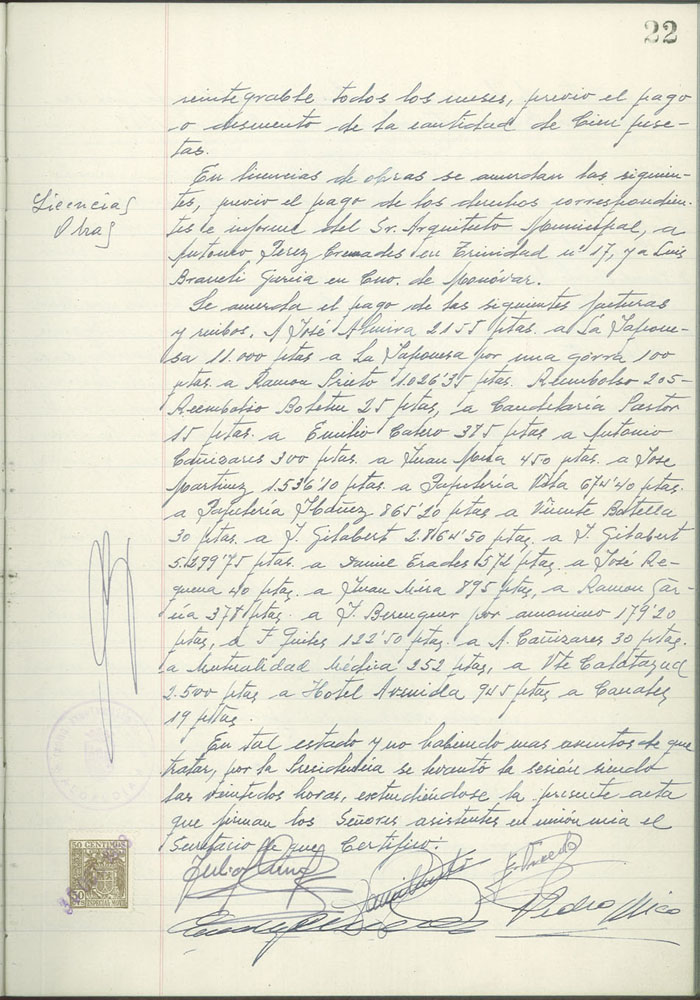 22
reintegrable todos los meses, previo el pago
o descuento de la cantidad de Cien pese-
tas.
Licencias
Obras
En licencias de obras se acuerdan las siguien-
tes, previo el pago de los derechos correspondien-
tes e informe del Sr. Arquitecto Municipal, a
Antonio Perez Cremades en Trinidad nº 17, y a Luis
Braceli Garcia en Cno. de Monóvar.
Se acuerda el pago de las siguientes facturas
y recibos. A José Almira 2155 ptas. a La Japone-
sa 11.000 ptas a La Japonesa por una gorra 100
ptas. a Ramon Prieto 1.026'35 ptas. Reembolso 205-
Reembolso Boletin 25 ptas, a Candelaria Pastor
15 ptas. a Emilio Calero 375 ptas a Antonio
Cañizares 300 ptas. a Juan Mira 450 ptas. a José
Martinez 1.536'10 ptas. a Papeleria Vda 674'40 ptas.
a Papeleria Ibáñez 865'20 ptas a Vicente Botella
30 ptas. a J. Gilabert 2.864'50 ptas. a J. Gilabert
5.299'75 ptas. a Daniel Erades 572 ptas, a José Re-
quena 40 ptas. a Juan Mira 895 ptas, a Ramon Gar-
cia 378 ptas. a J. Berenguer por amoniaco 179'20
ptas, a F. 122'50 ptas. a A. Cañizares 30 ptas.
a Mutualidad Médica 252 ptas, a Vte Calatayud
2.500 ptas a Hotel Avenida 945 ptas a Canales
19 ptas.
En tal estado y no habiendo mas asuntos de que
tratar, por la Presidencia se levanto la sesión siendo
las veintidos horas, extendiéndose la presente acta
que firman los Señores asistentes en unión mia el
Secretario de que Certifico:
50 CENTIMOS
ESPECIAL MOVIL
Pedro Mico